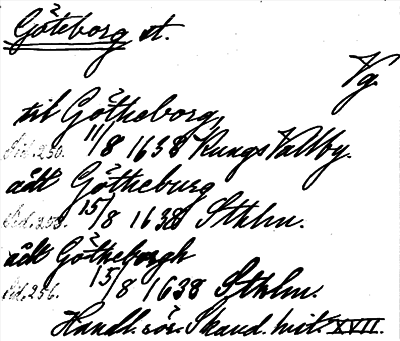 Göteborg st.
Vg.
til Götheborg,
Sid. 250. 11/8 1638 Kungs Vallby.
aåt Götheburg
Sid. 253. 15/8 1638 Sthlm.
aåt Götheborgh
Sid. 256. 15/8 1638 Sthlm.
Handl. rör. Skand. hist. XVII.